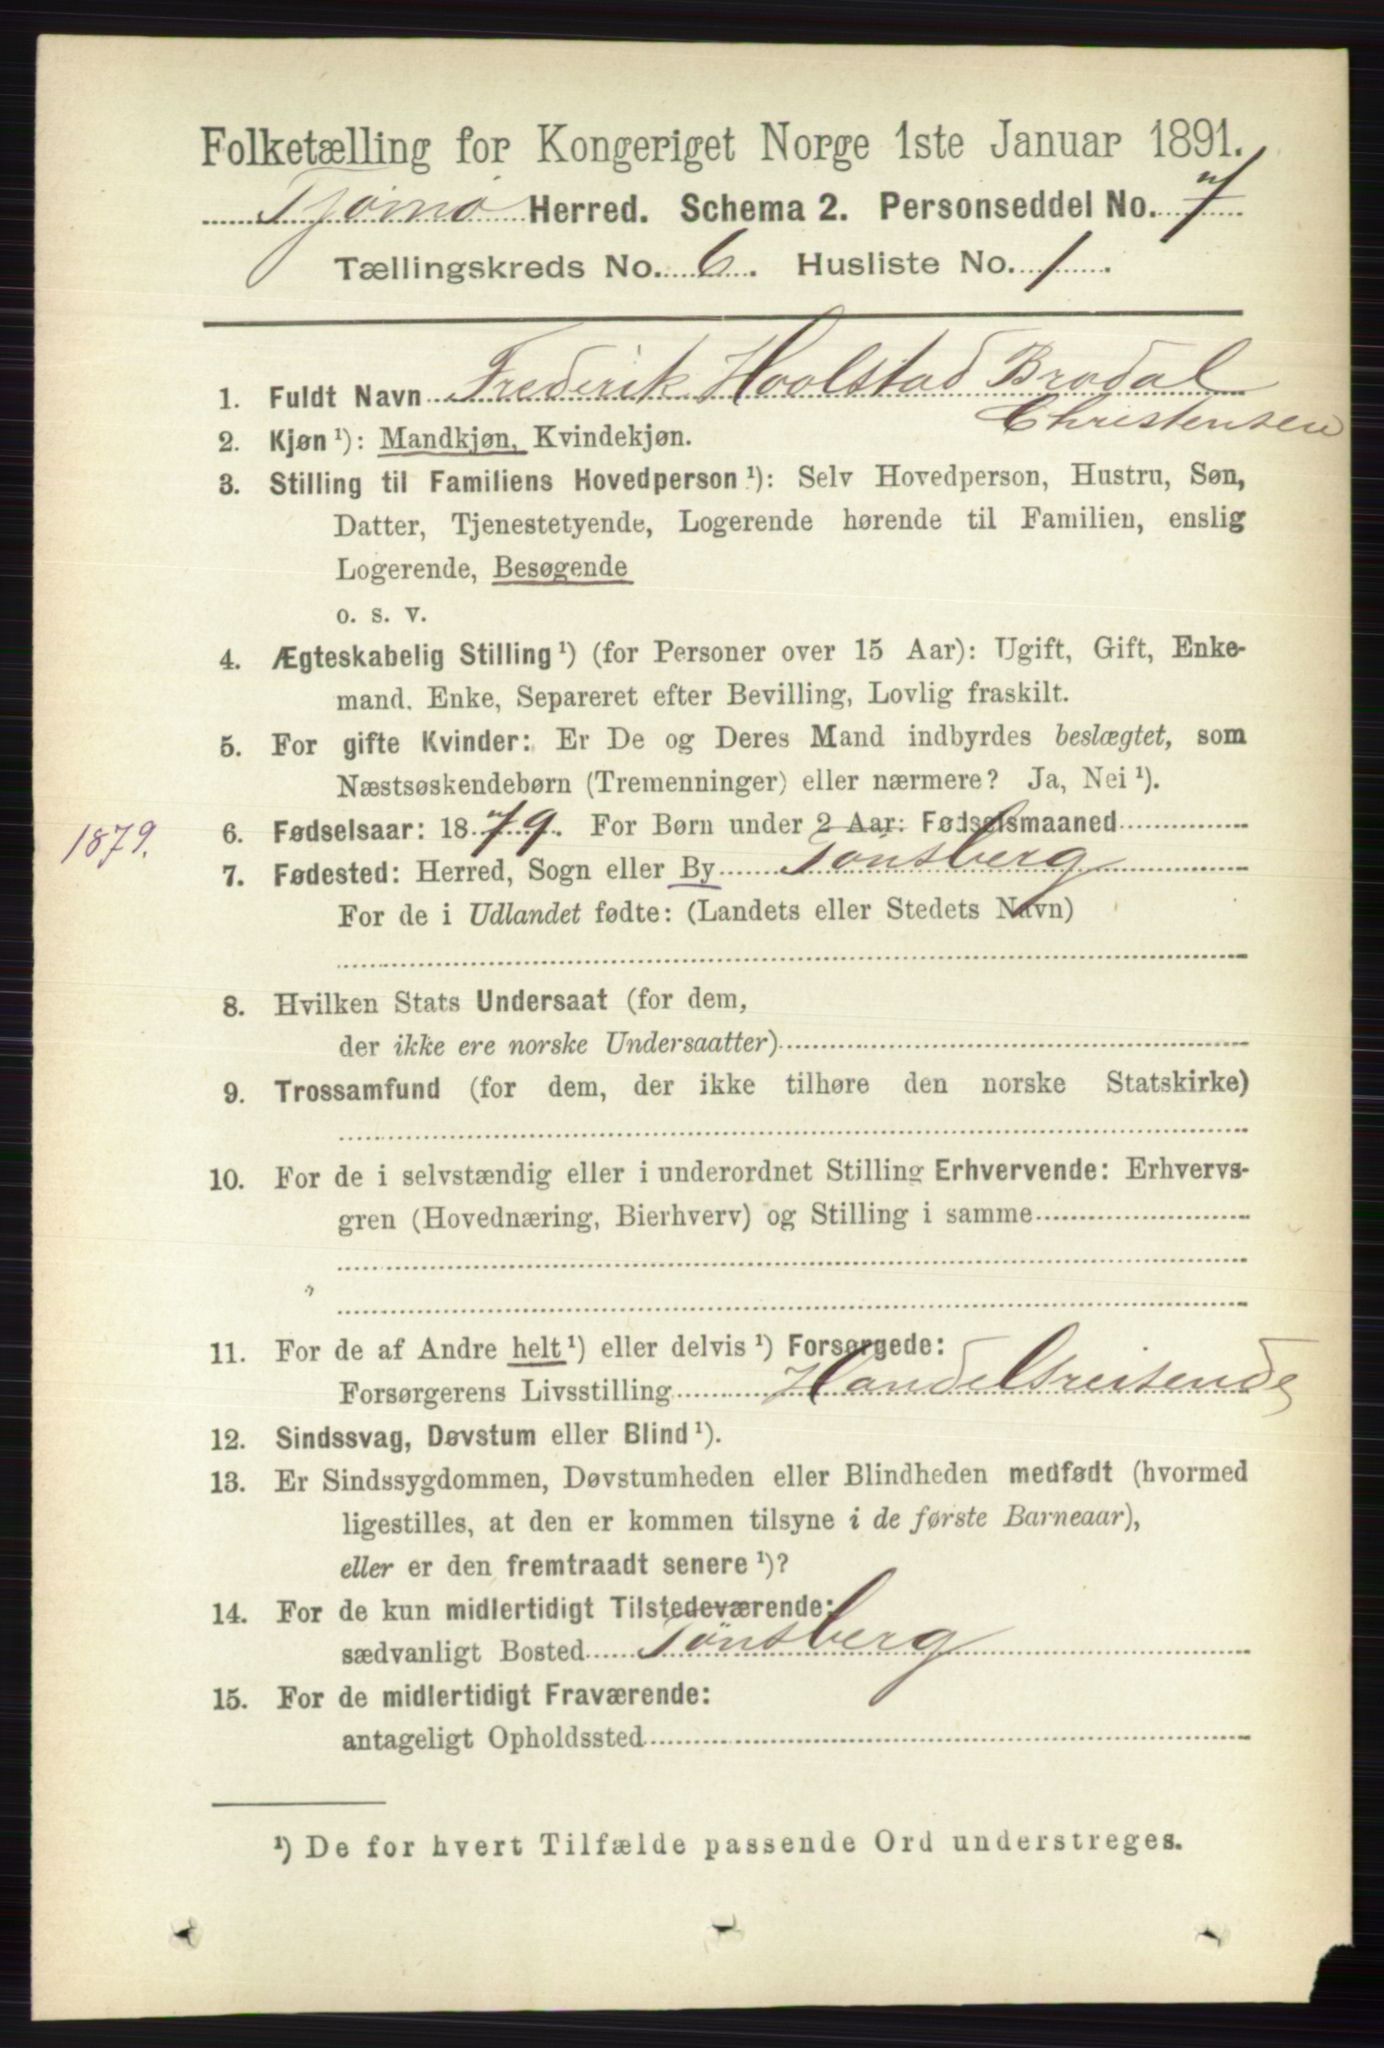 Folketælling for Kongeriget Norge 1ste Januar 1891.
Tjømø Herred. Schema 2. Personseddel No. 7
Tællingskreds No. 6. Husliste No. 1.
1. Fuldt Navn Frederik Hvolstad Brodal
Christensen
2. Kjøn ¹): Mandkjøn, Kvindekjøn.
3. Stilling til Familiens Hovedperson ¹): Selv Hovedperson, Hustru, Søn,
Datter, Tjenestetyende, Logerende hørende til Familien, enslig
Logerende, Besøgende
o. s. v.
4. Ægteskabelig Stilling ¹) (for Personer over 15 Aar): Ugift, Gift, Enke-
mand. Enke, Separeret efter Bevilling, Lovlig fraskilt.
5. For gifte Kvinder: Er De og Deres Mand indbyrdes beslægtet, som
Næstsøskendebørn (Tremenninger) eller nærmere? Ja, Nei ¹).
1879.
6. Fødselsaar: 1879. For Børn under 2 Aar: Fødselsmaaned
7. Fødested: Herred, Sogn eller By Tønsberg
For de i Udlandet fødte: (Landets eller Stedets Navn)
8. Hvilken Stats Undersaat (for dem,
der ikke ere norske Undersaatter)
9. Trossamfund (for dem, der ikke tilhøre den norske Statskirke)
10. For de i selvstændig eller i underordnet Stilling Erhvervende: Erhvervs-
gren (Hovednæring, Bierhverv) og Stilling i samme
11. For de af Andre helt ¹) eller delvis ¹) Forsørgede:
Forsørgerens Livsstilling Handelsreisende
12. Sindssvag, Døvstum eller Blind ¹).
13. Er Sindssygdommen, Døvstumheden eller Blindheden medfødt (hvormed
ligestilles, at den er kommen tilsyne i de første Barneaar),
eller er den fremtraadt senere ¹)?
14. For de kun midlertidigt Tilstedeværende:
sædvanligt Bosted Tønsberg
15. For de midlertidigt Fraværende:
antageligt Opholdssted
¹) De for hvert Tilfælde passende Ord understreges.